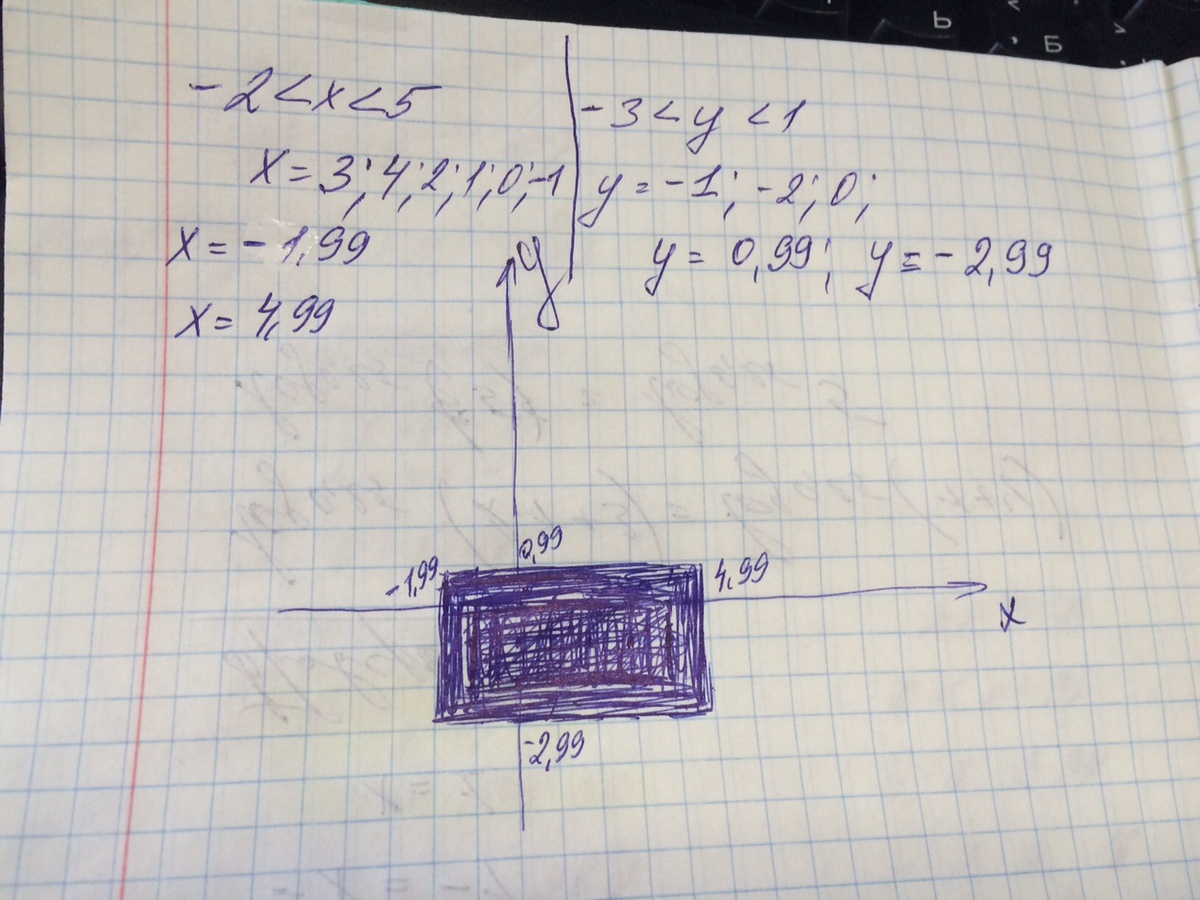 -2<x<5
x=3;4;2;1;0;-1
x=-1,99
x=4,99
-3<y<1
y=-1;-2;0;
y=0,99; y=-2,99
y
0,99
-1,99
4,99
x
-2,99
ь
Б